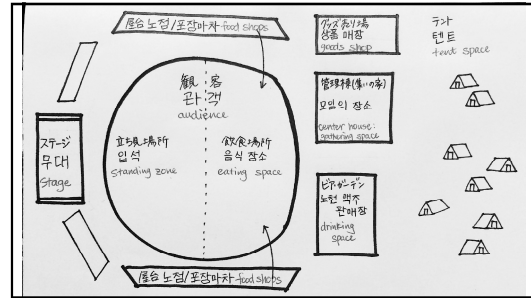 屋台 노점/포장마차 food shops
グッズ売り場
상품 매장
goods shop
テント
텐트
tent space
観 客
관 객
audience
管理棟(集いの家)
모임의 장소
center house:
gathering space
ステージ
무대
Stage
立ち見場所
입석
standing zone
飲食場所
음식 장소
eating space
ビアガーデン
노천 맥주
판매장
drinking
space
屋台 노점/포장마차 food shops